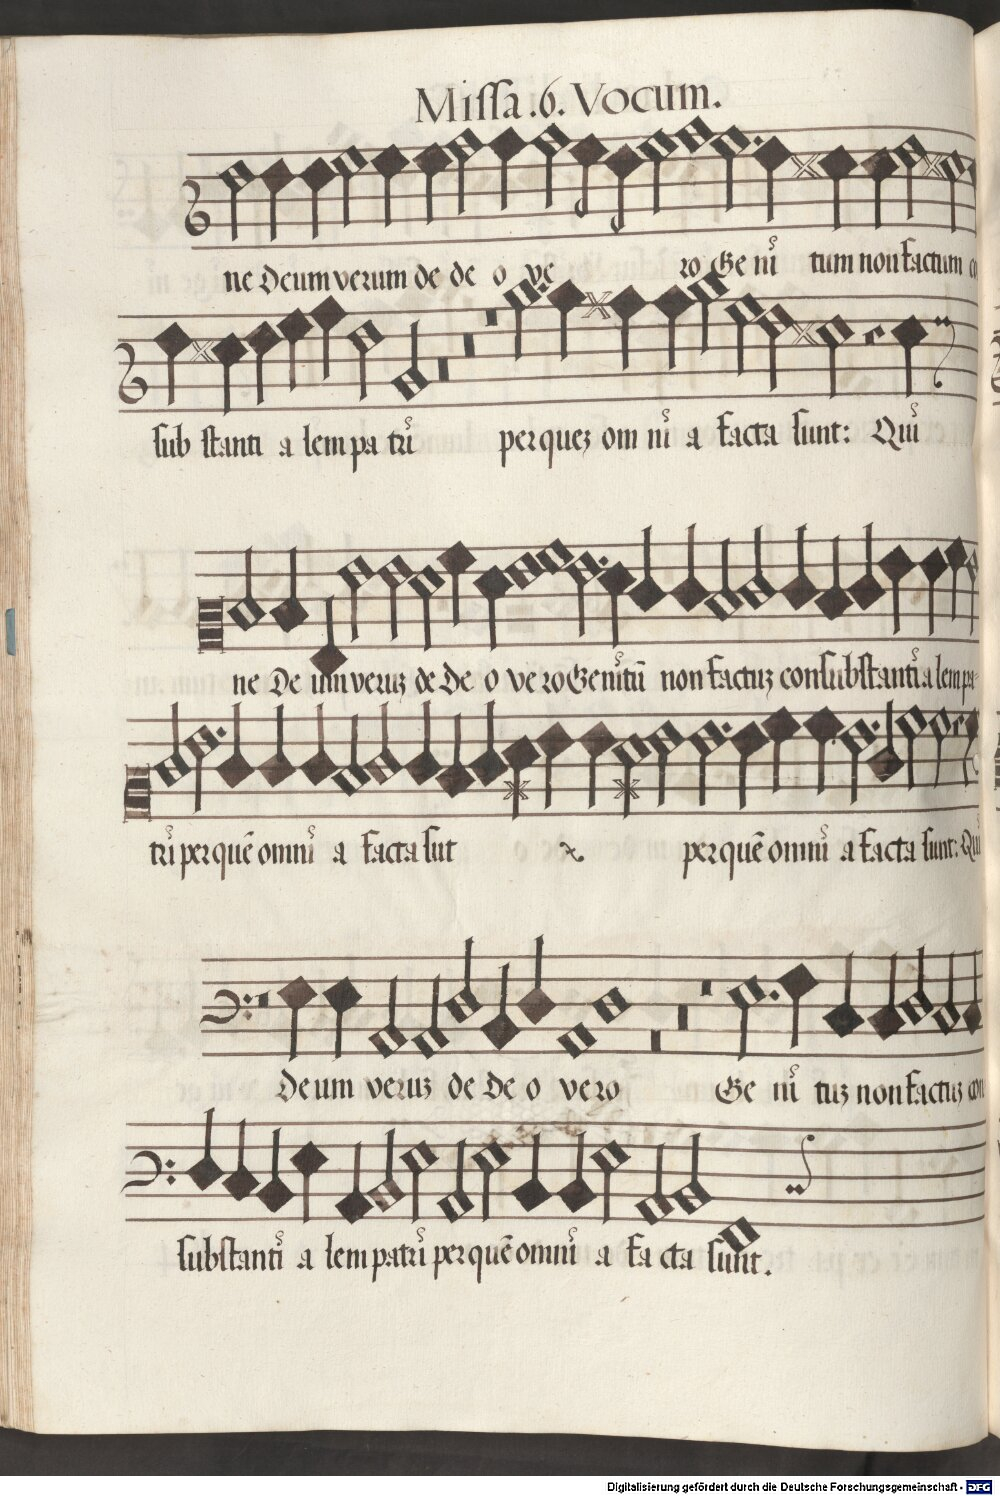 Missa .6. Vocum.
ne Deum verum de de o ve ro Ge ni tum non factum
sub stanti a lem pa tri per quez om ni a facta sunt: Qui
ne De um veruz de De o ve ro Genitū non factuz consubstanti a lem pa-
tri per quē omni a facta sūt per quē omni a facta sunt: Qui
Deum veruz de De o vero Ge ni tuz non factuz con
substanti a lem patri per quē omni a fa cta sunt.
Digitalisierung gefördert durch die Deutsche Forschungsgemeinschaft - DFG